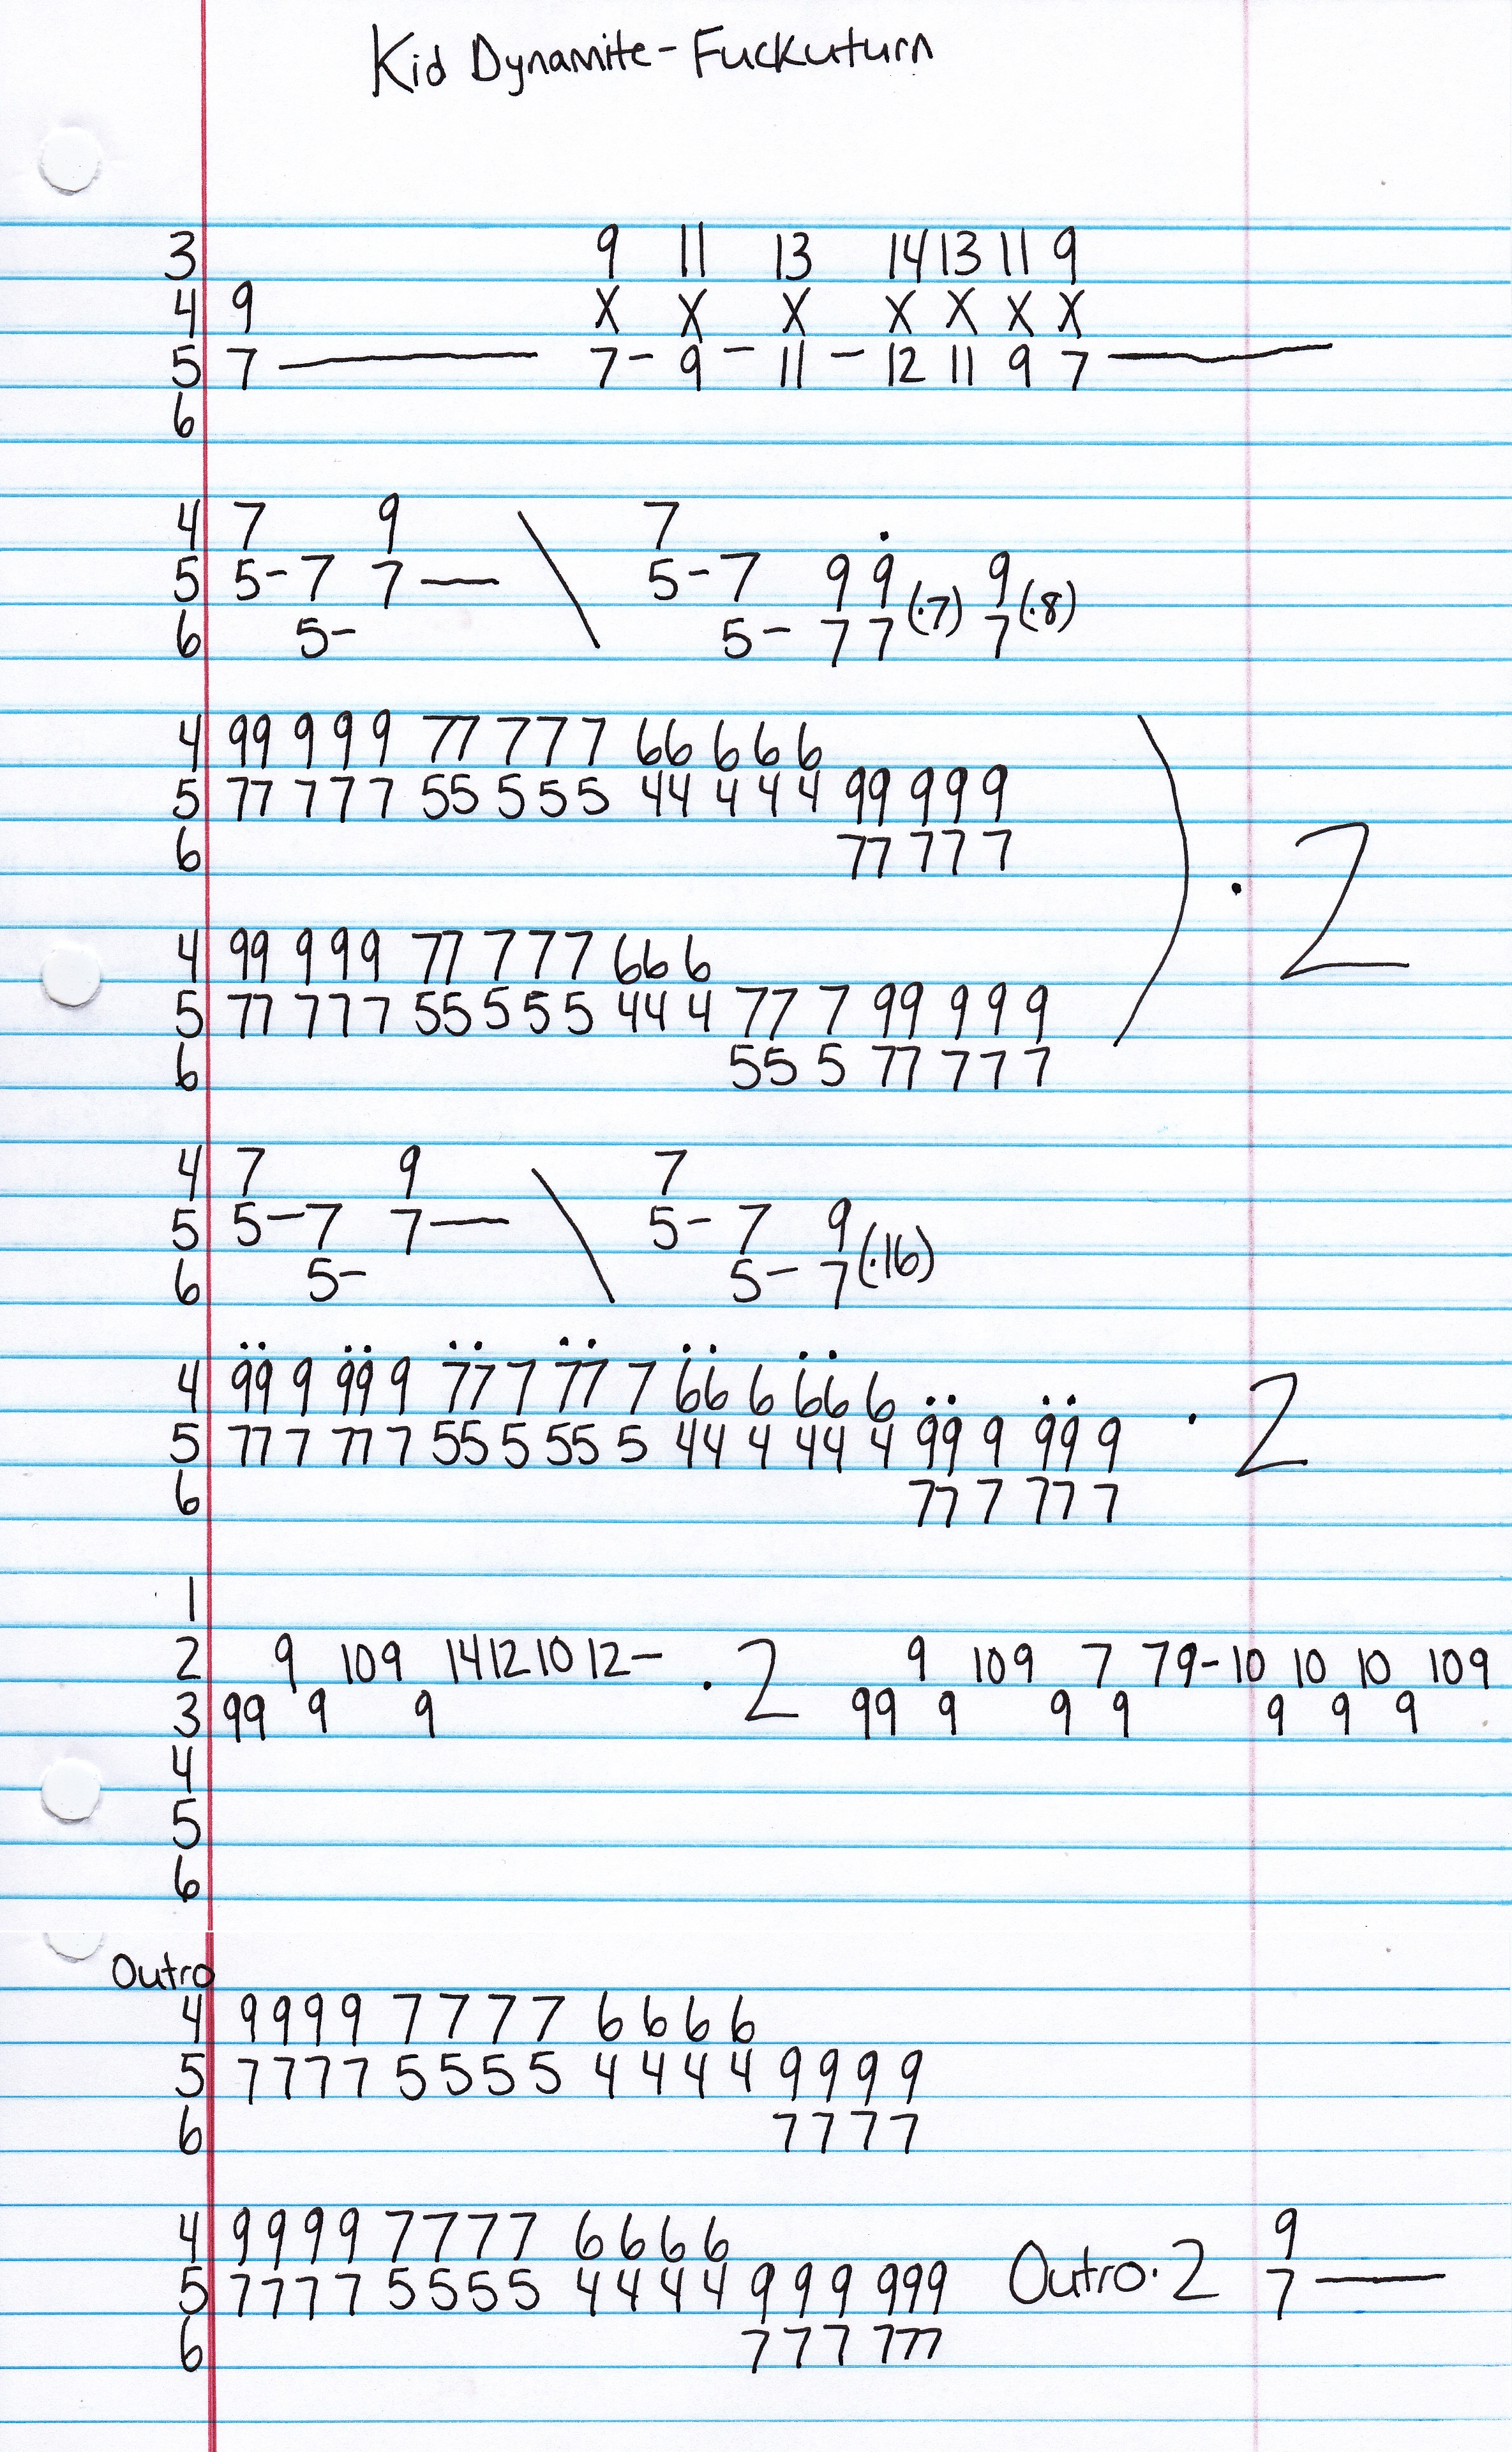 Kid Dynamite - Fuckuturn
3 9 11 13 14 13 11 9
4 9 X X X X X X X
5 7 — 7 - 9 - 11 - 12 11 9 7 —
6
4 7 9 \ 7
5 5-7 7 — 5-7 9 9 (·7) 9 (·8)
6 5- 5- 7 7 7
4 99 9 9 9 77 7 7 7 66 6 6 6
5 77 7 7 7 55 5 5 5 44 4 4 4 99 9 9 9
6 77 7 7 7
) · 2
4 99 9 9 9 77 7 7 7 66 6
5 77 7 7 7 55 5 5 5 44 4 77 7 99 9 9 9
6 55 5 77 7 7 7
4 7 9 \ 7
5 5-7 7 — 5-7 9 (·16)
6 5- 5- 7
4 99 9 99 9 77 7 77 7 66 6 66 6
5 77 7 77 7 55 5 55 5 44 4 44 4 99 9 99 9 · 2
6 77 7 77 7
1
2 9 10 9 14 12 10 12- · 2 9 10 9 7 7 9-10 10 10 10 9
3 99 9 9 99 9 9 9 9 9 9
4
5
6
Outro
4 9 9 9 9 7 7 7 7 6 6 6 6
5 7 7 7 7 5 5 5 5 4 4 4 4 9 9 9 9
6 7 7 7 7
4 9 9 9 9 7 7 7 7 6 6 6 6 9
5 7 7 7 7 5 5 5 5 4 4 4 4 9 9 9 999 Outro · 2 7 —
6 7 7 7 777